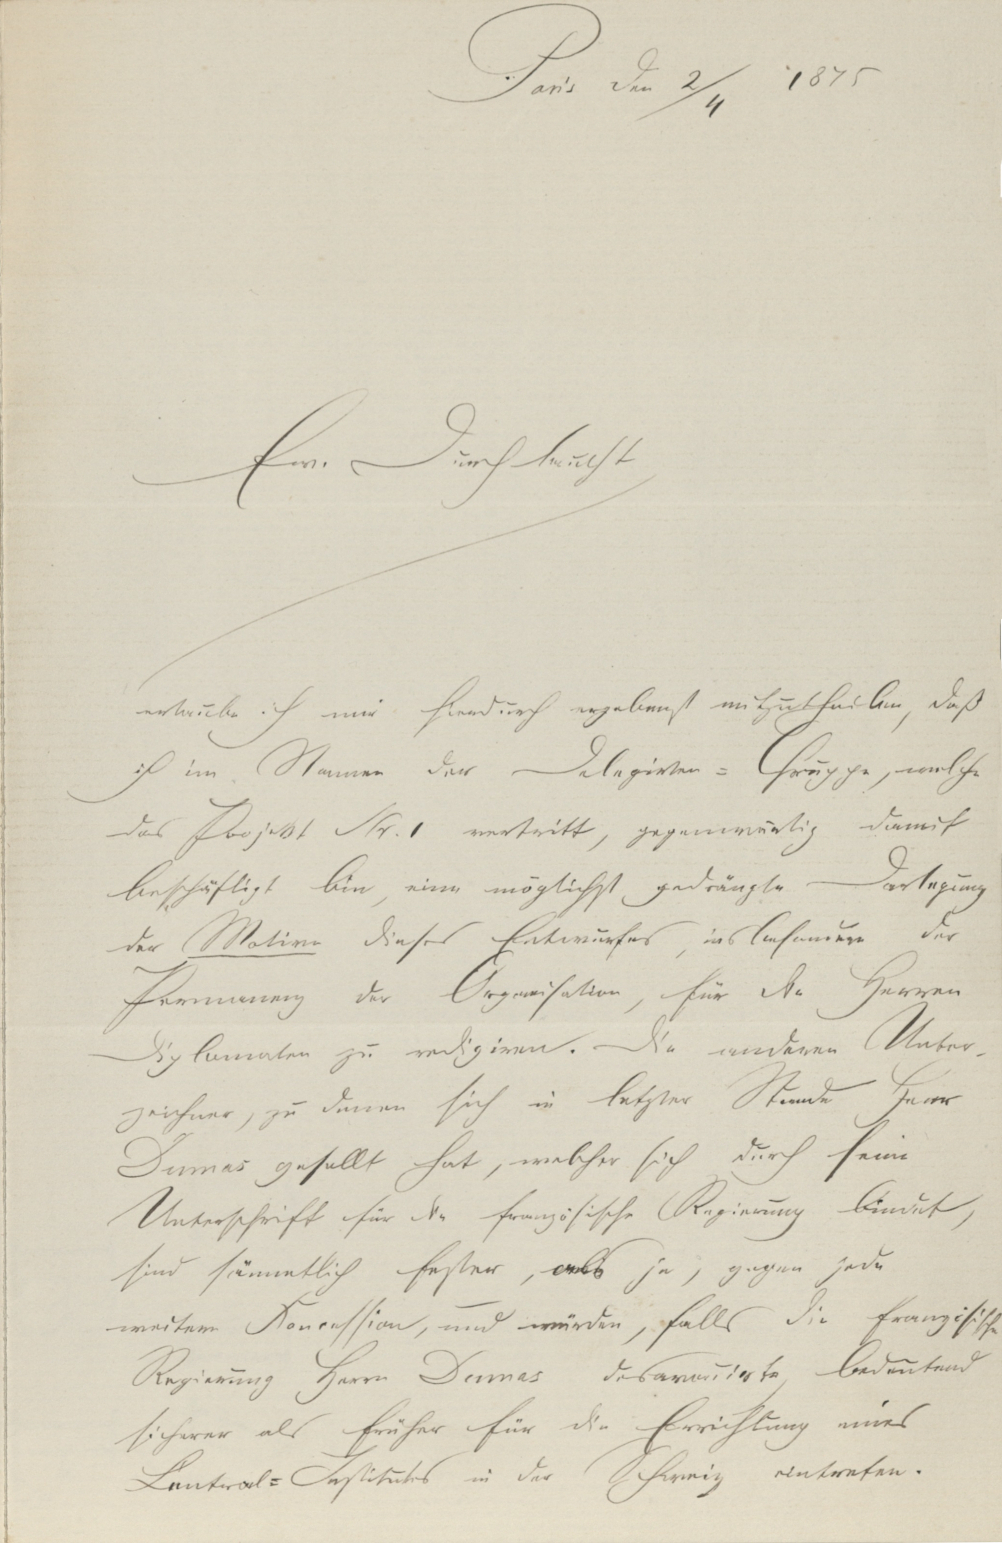 Paris den 2/4 1875
Ew. Durchlaucht
erlaube ich mir hierdurch ergebenst mitzutheilen, daß
ich im Namen der Delegirten-Gruppe, welche
das Projekt Nr. 1 vertritt, gegenwärtig damit
beschäftigt bin, eine möglichst gedrängte Darlegung
der Motive dieses Entwurfes, insbesondere der
Permanenz der Organisation, für die Herren
Diplomaten zu redigiren. Die anderen Unter-
zeichner, zu denen sich in letzter Stunde Herr
Dumas gesellt hat, welcher sich durch seine
Unterschrift für die französische Regierung bindet,
sind sämmtlich fester, als je, gegen jede
weitere Koncession, und würden, falls die französische
Regierung Herrn Dumas desavouirte, bedeutend
sicherer als früher für die Errichtung eines
Central-Institutes in der Schweiz eintreten.